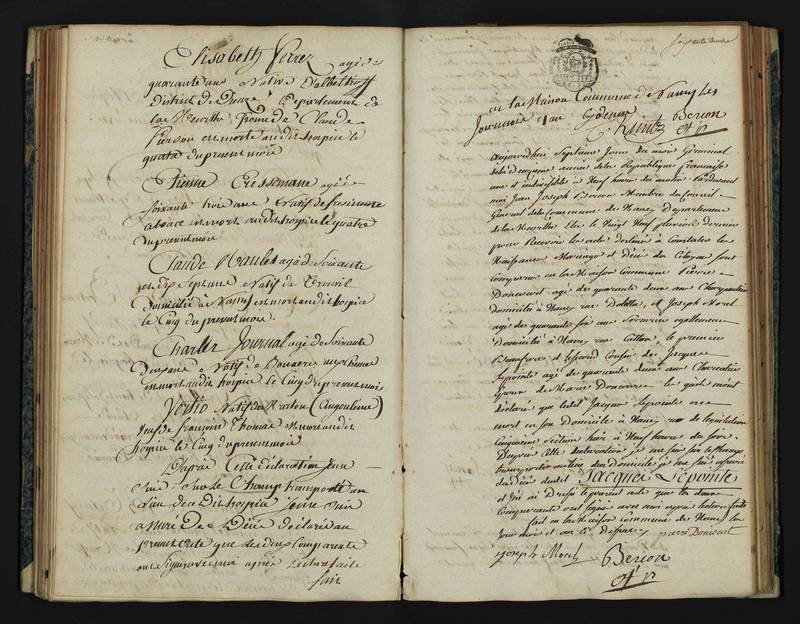 Elisabeth Verrez agée de
quarante ans Native D'albestroff
District de Dieuze Departement de
la Meurthe femme de Claude
Pierson est morte audit hospice le
quatre du present mois
Etienne agé de
soixante trois ans Natif de
alsace est mort audit hospice le quatre
du present mois
Claude Haulet agé de Soixante
et dix Sept ans Natif de
Domicilié à Nancy est mort audit hospice
le Cinq du present mois.
Charles Journal agé de Soixante
Deux ans Natif de
est mort audit hospice le Cinq du present mois
Natif de (Angouleme)
fils de françois Thomas est mort audit
hospice le Cinq du present mois
D'après Cette déclaration je me
Suis Sur le Champ transporté au
Lieu dudit hospice je me suis
assuré Des Décès déclarés au
present acte que les deux Comparants
ont Signé avec moi après Lecture faite
fait
en la Maison Commune de Nancy les
Jour mois et an
Kuntz Bercon
Of. p.
aujourdhui Septieme Jour du mois Germinal
de la deuxieme année de la Republique française
une et indivisible à Neuf heures du matin Pardevant
moi Jean Joseph Bercon Membre du Conseil
General de la Commune de Nancy Departement
de la Meurthe Elu le Vingt Neuf pluviose dernier
pour Recevoir les actes destinés à Constater les
Naissances Mariages et Décès des Citoyens sont
Comparus en la Maison Commune Pierre
Doncourt agé de quarante deux ans Charpentier
domicilié à Nancy rue et Joseph Morel
agé de quarante six ans egallement
Domicilié à Nancy rue Callot, le premier
Beaufrere et le second Cousin de Jacques
Lepointe agé de quarante deux ans Charpentier
Epoux de Marie Doncourt les quels m'ont
déclaré que ledit Jacques Lepointe est
mort en son Domicile à Nancy rue de legislation
Cinquieme Section hier à Neuf heures du soir.
D'après cette declaration je me suis sur le Champ
transporté au lieu du Domicile je me suis assuré
du Décès dudit Jacques Lepointe
et j'en ai Dressé le present acte que les deux
Comparants ont signé avec moi après lecture faite
fait en la Maison Commune de Nancy les
Jour mois et an Cy dessus pierre Doncourt
joseph Morel Bercon
Of. p.